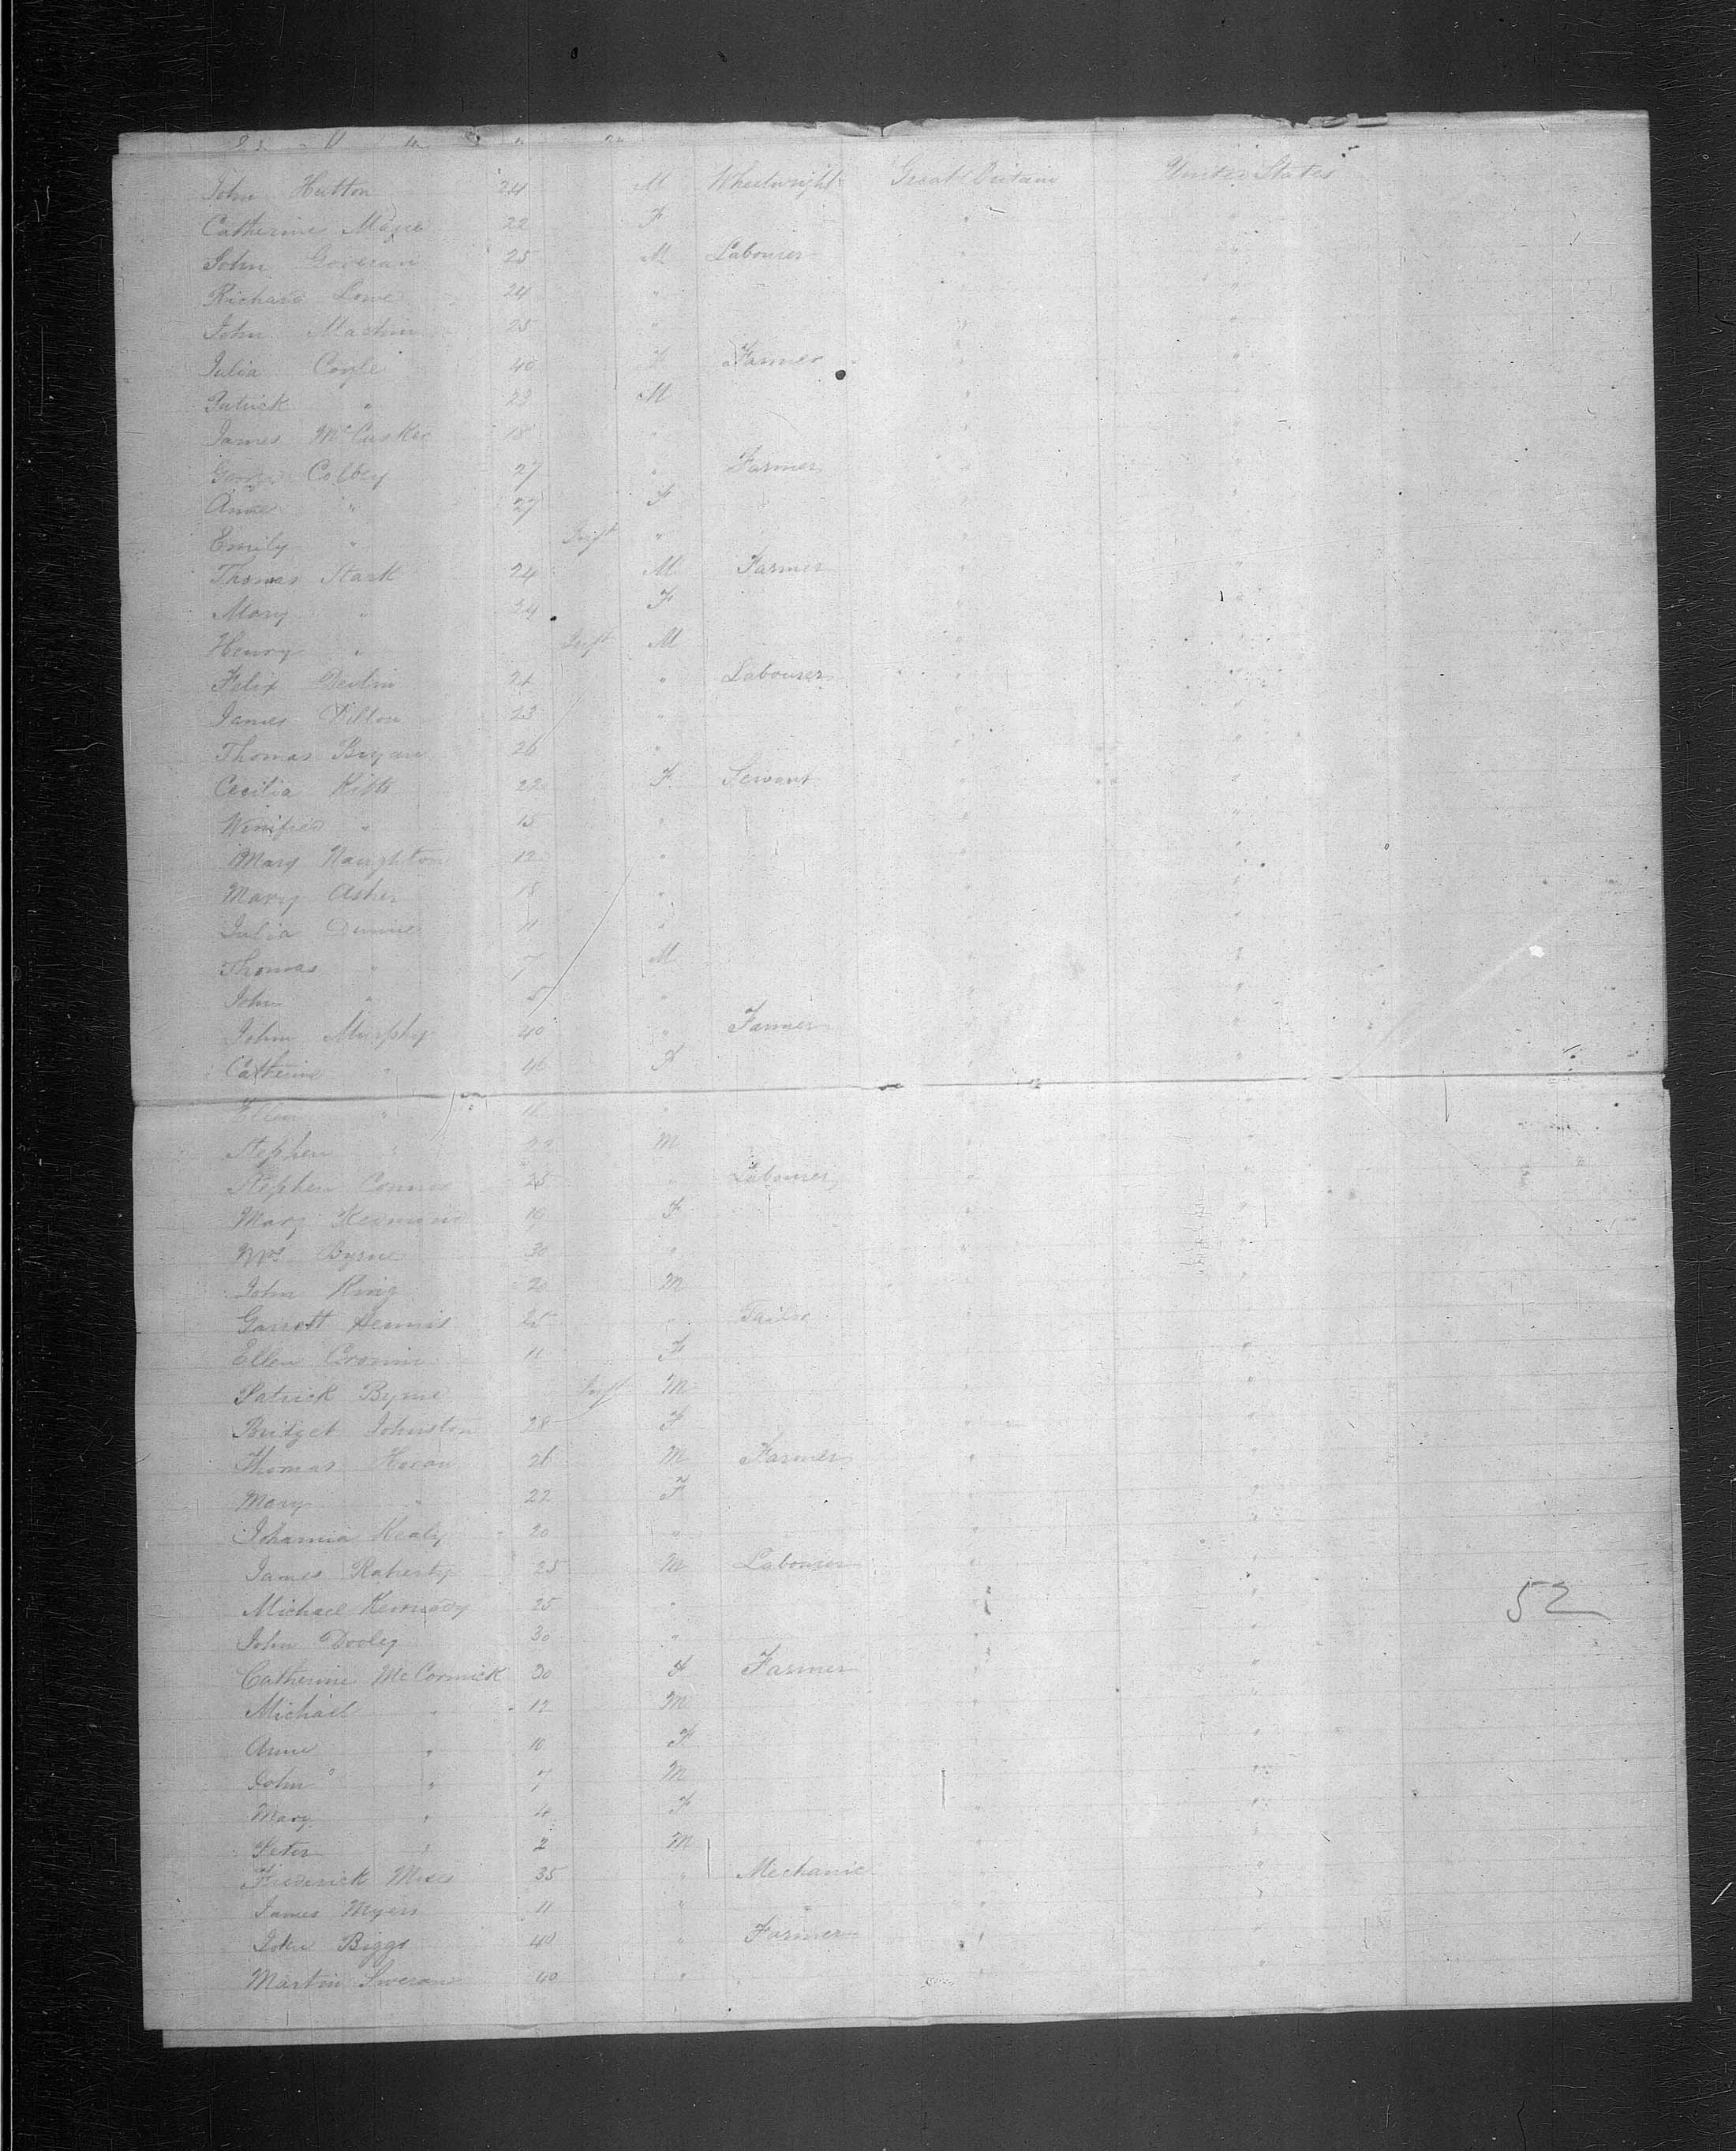 John Hutton 24 M Wheelwright Great Britain United States
Catherine 22 F " "
John 25 M Labourer " "
Richard Lowe 24 " " "
John Machin 25 " " "
Julia Coyle 40 F Farmer " "
Patrick " 23 M " "
James McCusker 18 " " "
George Colbey 27 " Farmer " "
Anne " 27 F " "
Emily " Inft " " "
Thomas Stark 24 M Farmer " "
Mary " 24 F " "
Henry " Inft M " "
Felix Devlin 24 " Labourer " "
James Dillon 23 " " "
Thomas Bryan 26 " " "
Cecilia 22 F Servant " "
Winifred " 15 " " "
Mary Naughton 12 " " "
Mary Asher 18 " " "
Julia Dunne 11 " " "
Thomas " 7 M " "
John " 5 " " "
John Murphy 40 " Farmer " "
Catherine " 46 F " "
Ellen " " " "
Stephen " 22 M " "
Stephen Connor 25 " Labourer " "
Mary 19 F " "
Mrs Byrne 30 " " "
John King 20 M " "
Garrett Dennis 25 " Tailor " "
Ellen Cronin 11 F " "
Patrick Byrne Inft M " "
Bridget Johnston 28 F " "
Thomas Horan 26 M Farmer " "
Mary " 22 F " "
Johanna Healy 20 " " "
James Raherty 25 M Labourer " "
Michael Kennedy 25 " " "
52
John Dooley 30 " " "
Catherine McCormick 30 F Farmer " "
Michael " 12 M " "
Anne " 10 F " "
John " 7 M " "
Mary " 4 F " "
Peter " 2 M " "
Frederick 35 " Mechanic " "
James Myers 11 " " "
John Biggs 40 " Farmer " "
Martin 40 " " "